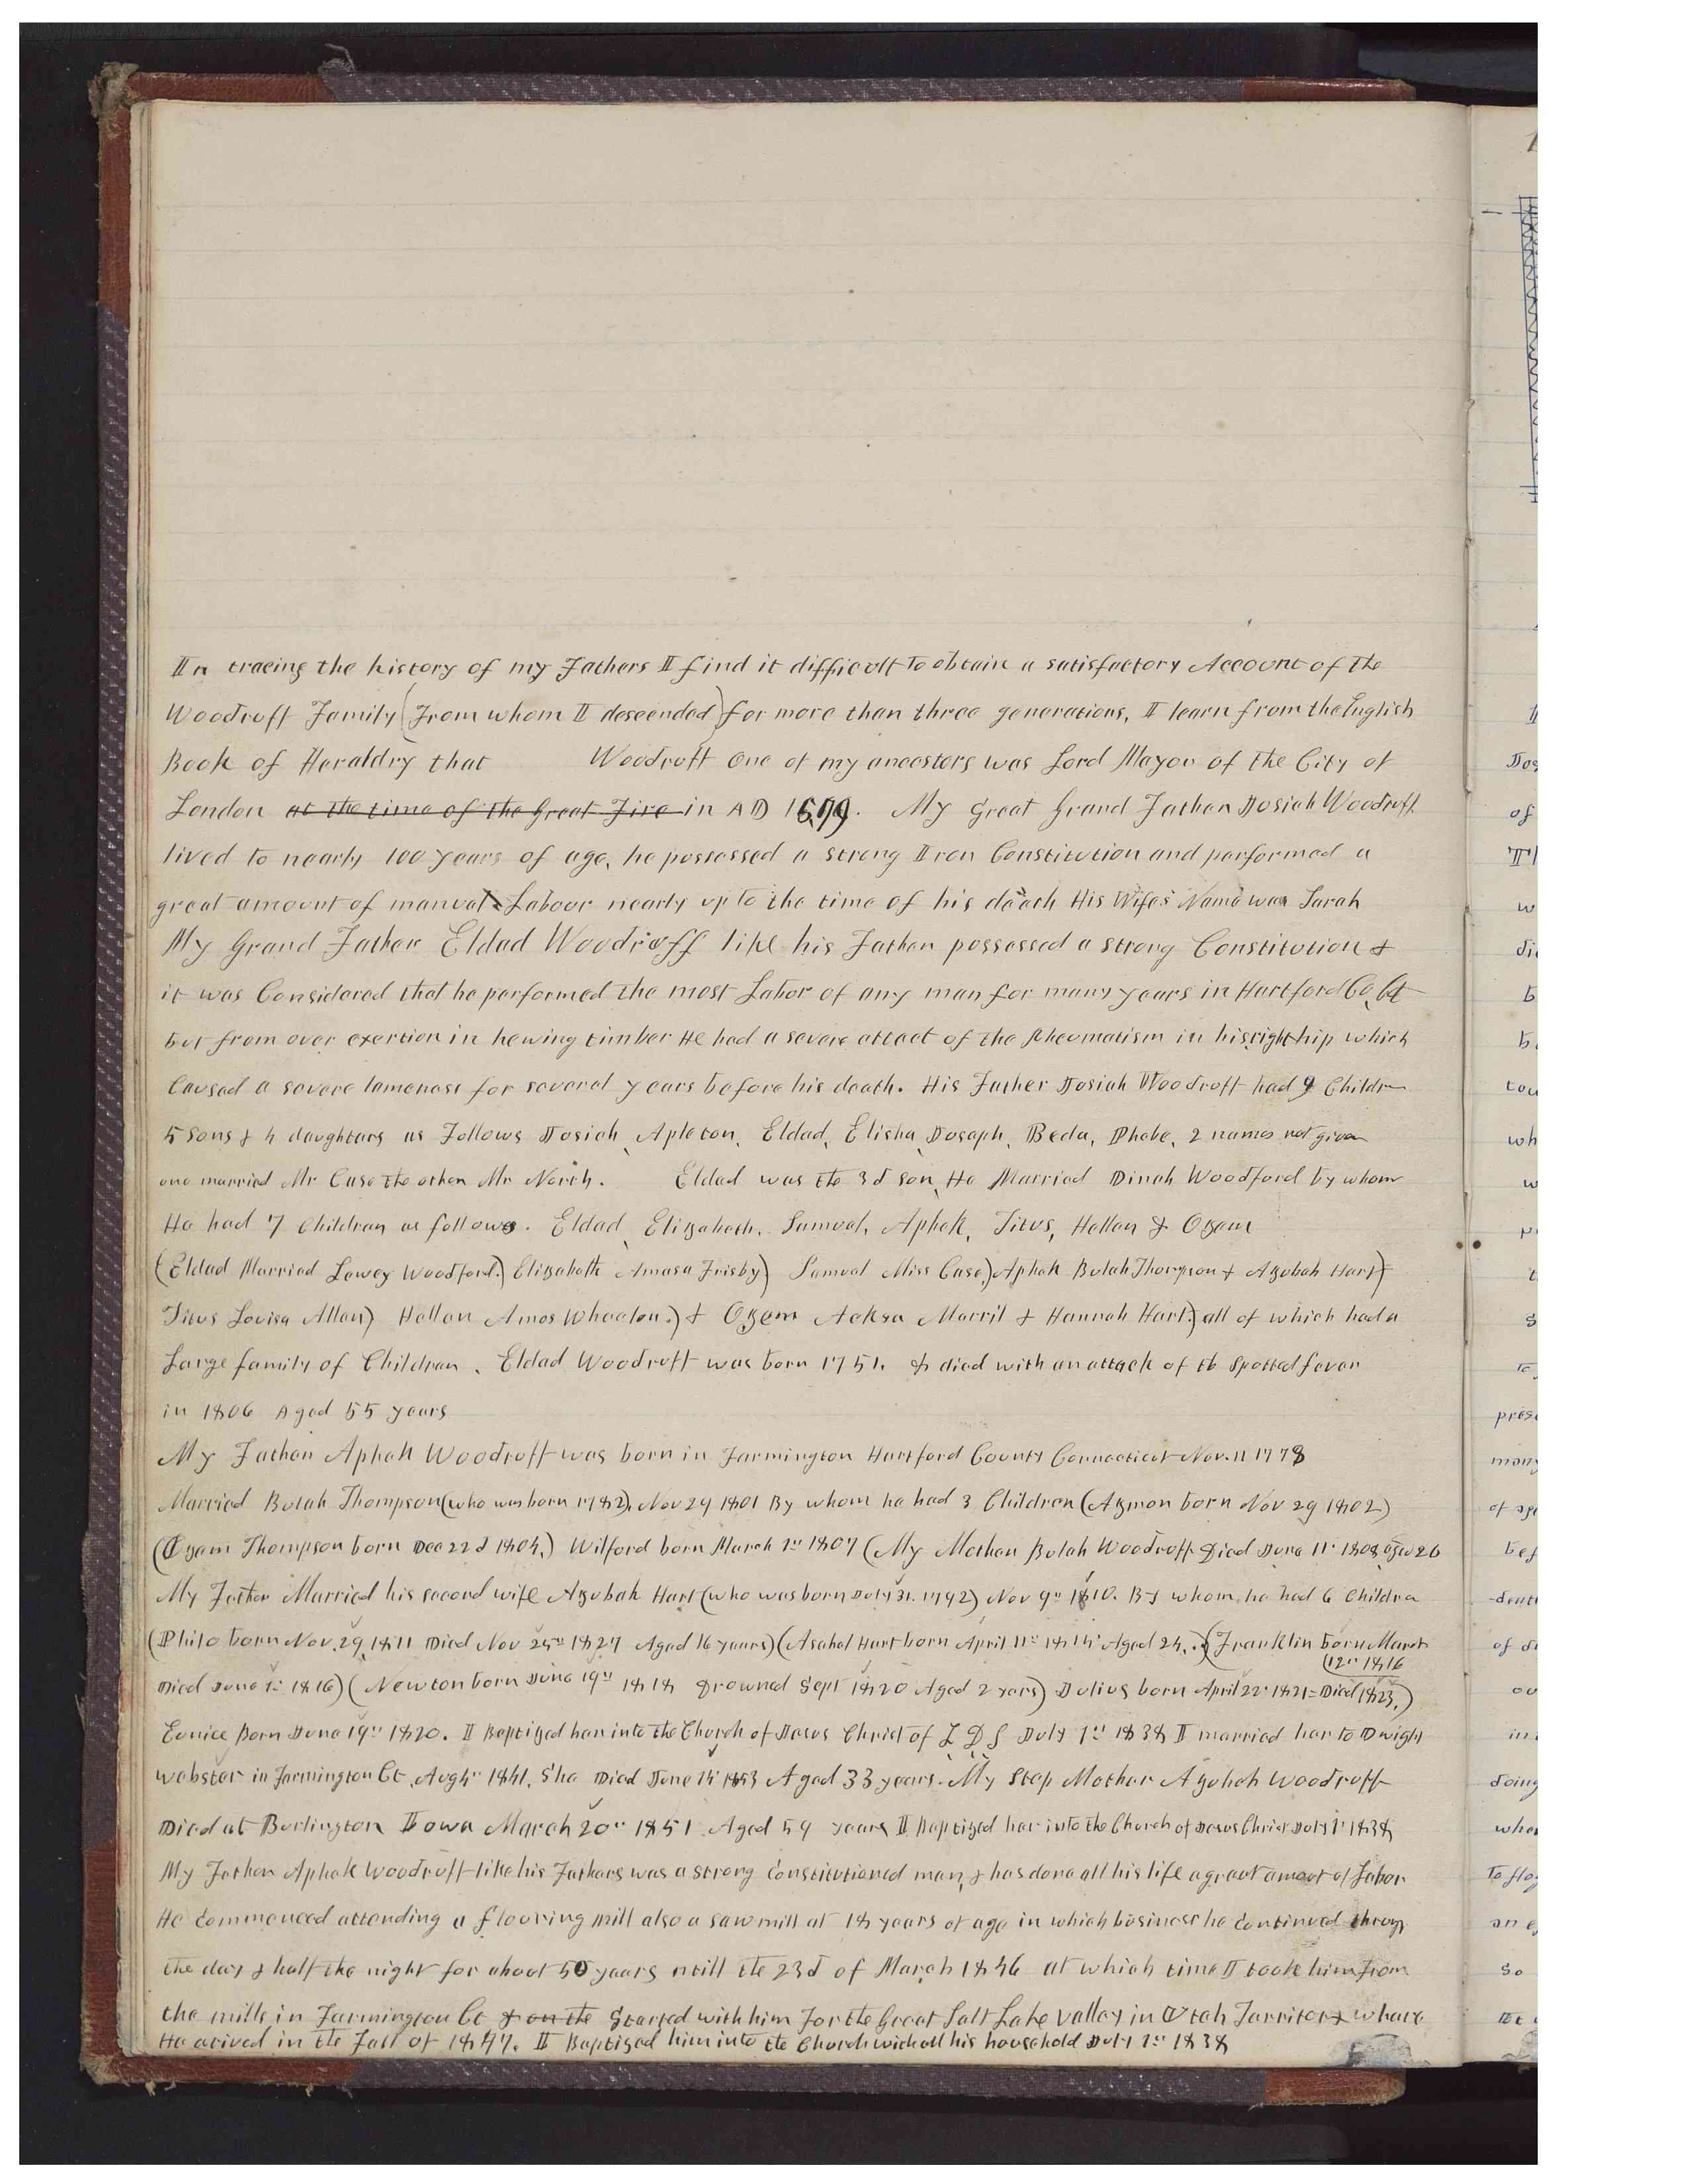 In tracing the history of my Fathers I find it difficult to obtain a satisfactory Account of the
Woodruff Family (From whom I descended) for more than three generations, I learn from the English
Book of Heraldry that Woodruff one of my ancestors was Lord Mayor of the City of
London at the time of the Great Fire in AD 1579. My Great Grand Father Josiah Woodruff
lived to nearly 100 years of age, he possessed a strong Iron Constitution and performed a
great amount of manual Labour nearly up to the time of his death His Wifes Name was Sarah
My Grand Father Eldad Woodruff like his Father possessed a strong Constitution &
it was Considered that he performed the most Labor of any man for many years in Hartford Co, Ct
but from over exertion in hewing timber He had a severe attact of the Rheumatism in his right hip which
Caused a severe lameness for several years before his death. His Father Josiah Woodruff had 9 Children
5 Sons & 4 daughters as Follows Josiah, Apleton, Eldad, Elisha, Joseph, Beda, Phebe, 2 names not given
one married Mr Case the other Mr North. Eldad was the 3d son, He Married Dinah Woodford by whom
He had 7 Children as follows. Eldad, Elizabeth, Samuel, Aphek, Titus, Hellen & Ozem
(Eldad Married Lewey Woodford.) Elizabeth Amasa Frisby) Samuel Miss Case) Aphek Bulah Thompson & Azubah Hart)
Titus Louisa Allen) Hellen Amos Wheelon.) & Ozem Acksa Merril & Hannah Hart.) all of which had a
Large family of Children. Eldad Woodruff was born 1751, & died with an attack of the spotted fever
in 1806 Aged 55 years
My Father Aphek Woodruff was born in Farmington Hartford County Connecticut Nov. 11 1778
Married Bulah Thompson (who was born 1782), Nov 29 1801 By whom he had 3 Children (Azmon born Nov 29 1802)
(Ozem Thompson born Dec 22d 1804.) Wilford born March 1st 1807 (My Mother Bulah Woodruff Died June 11th 1808, aged 26
My Father Married his second wife Azubah Hart (who was born July 31. 1792) Nov 9th 1810. By whom he had 6 Children
(Philo born Nov. 29, 1811 Died Nov 25th 1827 Aged 16 years) (Asahel Hart born April 11th 1814 Aged 24,.) (Franklin born March
(12th 1816
Died June 1st 1816) (Newton born June 19th 1818 Drowned Sept 1820 Aged 2 years) Julius born April 22d 1821= Died 1823,)
Eunice Born June 19th 1820. I Baptized her into the Church of Jesus Christ of L, D, S July 1st 1838 I married her to Dwight
Webster in Farmington Ct, Aug 4th 1841, She Died June 14 1853 Aged 33 years. My Step Mother Azubah Woodruff
Died at Burlington Iowa March 20th 1851 Aged 59 years I Baptized her into the Church of Jesus Christ July 1st 1838
My Father Aphek Woodruff like his Fathers was a strong Constitutioned man, & has done all his life a great amout of Labor
He Commenced attending a flouring mill also a saw mill at 18 years of age in which business he Continued throug
the day & half the night for about 50 years ntill the 23d of March 1846 at which time I took him From
the mills in Farmington Ct & on the Started with him For the Great Salt Lake Valley in Utah Territory where
He arived in the Fall of 1847. I Baptized him into the Church with all his household July 1st 1838